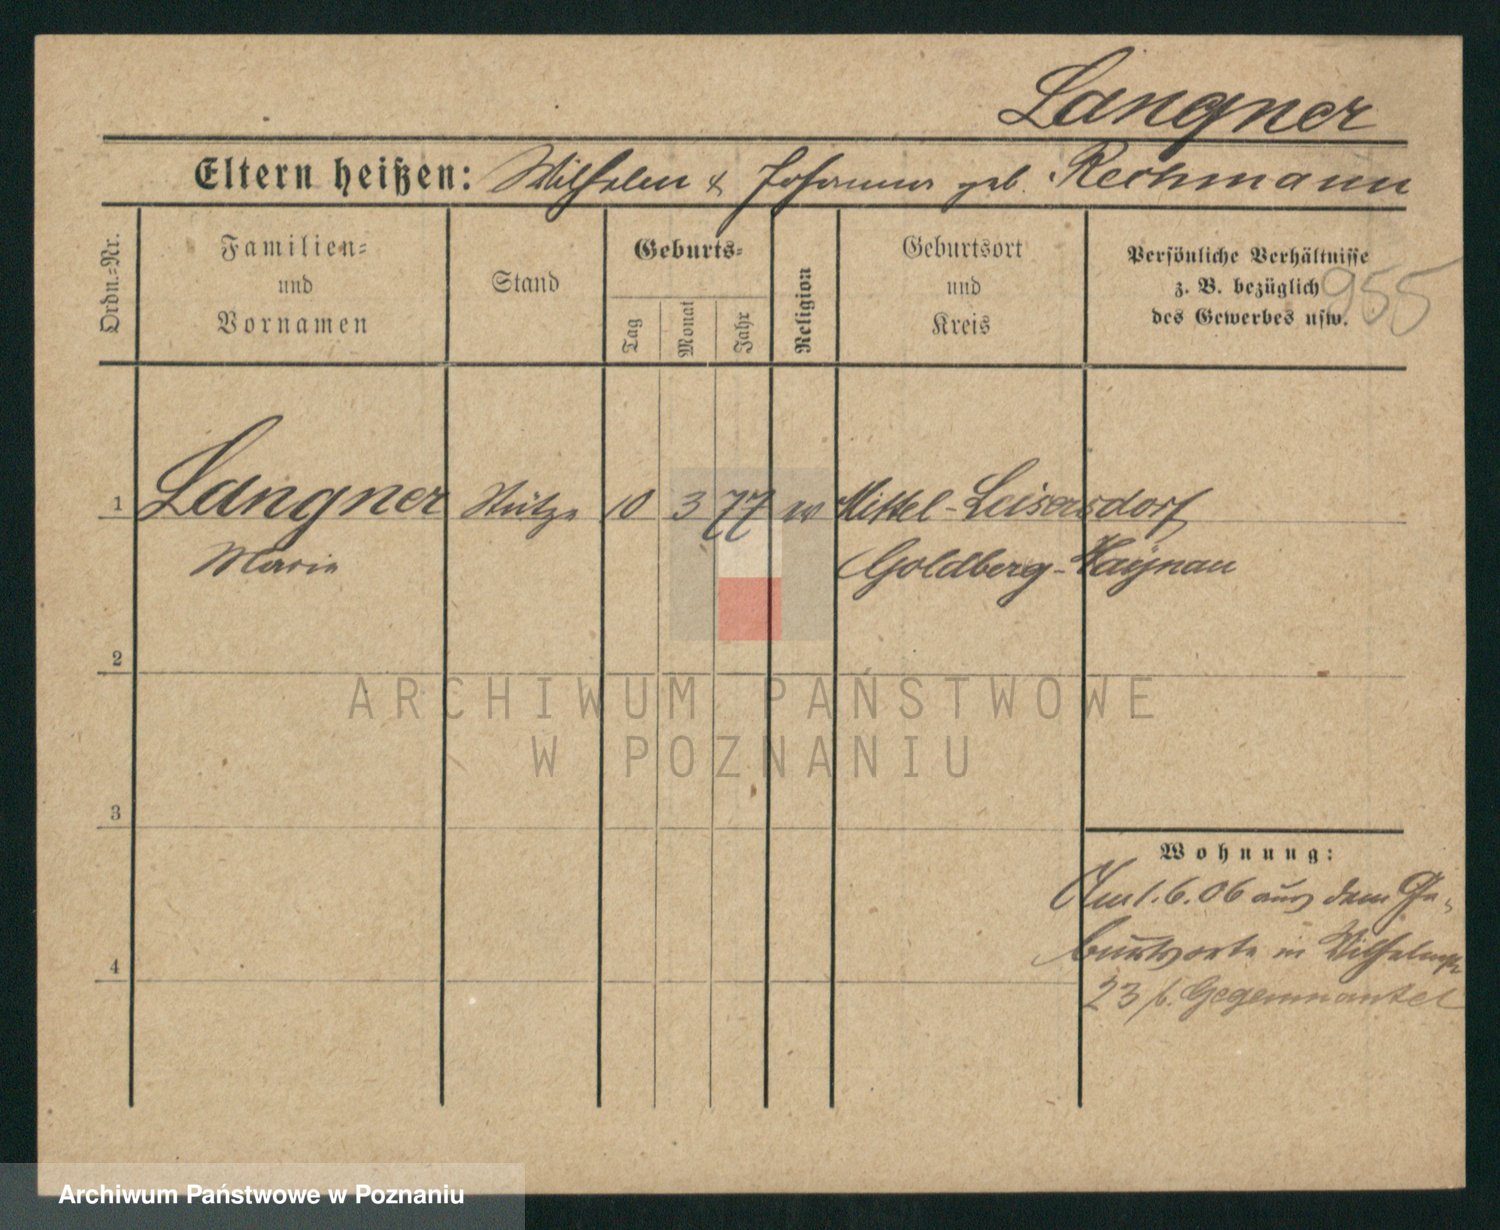 Langner
Eltern heißen: Wilhelm & Johanna geb. Rechmann
Ordn.-Nr.
Familien-
und
Vornamen
Stand
Geburts-
Tag
Monat
Jahr
Religion
Geburtsort
und
Kreis
Persönliche Verhältnisse
z. B. bezüglich
des Gewerbes usw.
955
1 Langner Stütze 10 3 77 ev Mittel-Leisersdorf
Marie Goldberg-Haynau
2
ARCHIWUM PAŃSTWOWE
W POZNANIU
3
Wohnung:
Am 1.6.06 aus dem Ge-
burtsorte in Wilhelmstr
4
23 b. Gegenmantel
Archiwum Państwowe w Poznaniu